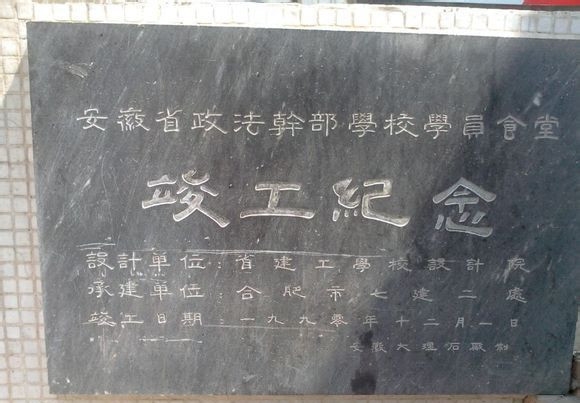 安徽省政法幹部學校學員食堂
竣工紀念
設計單位：省建工學校設計院
承建單位：合肥市七建二處
竣工日期：一九九零年十二月一日
安徽大理石廠制